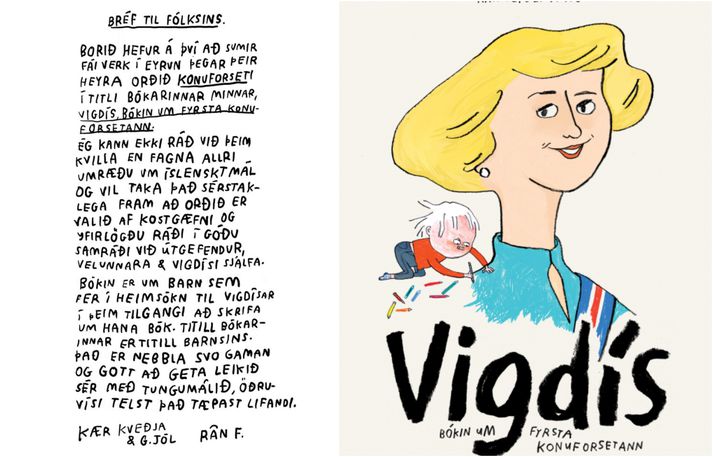 BRÉF TIL FÓLKSINS.
BORIÐ HEFUR Á ÞVÍ AÐ SUMIR
FÁI VERK Í EYRUN ÞEGAR ÞEIR
HEYRA ORÐIÐ KONUFORSETI
Í TITLI BÓKARINNAR MINNAR,
VIGDÍS, BÓKIN UM FYRSTA KONU-
FORSETANN.
ÉG KANN EKKI RÁÐ VIÐ ÞEIM
KVILLA EN FAGNA ALLRI
UMRÆÐU UM ÍSLENSKT MÁL
OG VIL TAKA ÞAÐ SÉRSTAK-
LEGA FRAM AÐ ORÐIÐ ER
VALIÐ AF KOSTGÆFNI OG
YFIRLÖGÐU RÁÐI Í GÓÐU
SAMRÁÐI VIÐ ÚTGEFENDUR,
VELUNNARA & VIGDÍSI SJÁLFA.
BÓKIN ER UM BARN SEM
FER Í HEIMSÓKN TIL VIGDÍSAR
Í ÞEIM TILGANGI AÐ SKRIFA
UM HANA BÓK. TITILL BÓKAR-
INNAR ER TITILL BARNSINS.
ÞAÐ ER NEBBLA SVO GAMAN
OG GOTT AÐ GETA LEIKIÐ
SÉR MEÐ TUNGUMÁLIÐ, ÖÐRU-
VÍSI TELST ÞAÐ TÆPAST LIFANDI.
KÆR KVEÐJA
& G.JÓL RÁN F.
Vigdís
BÓKIN UM FYRSTA
KONUFORSETANN